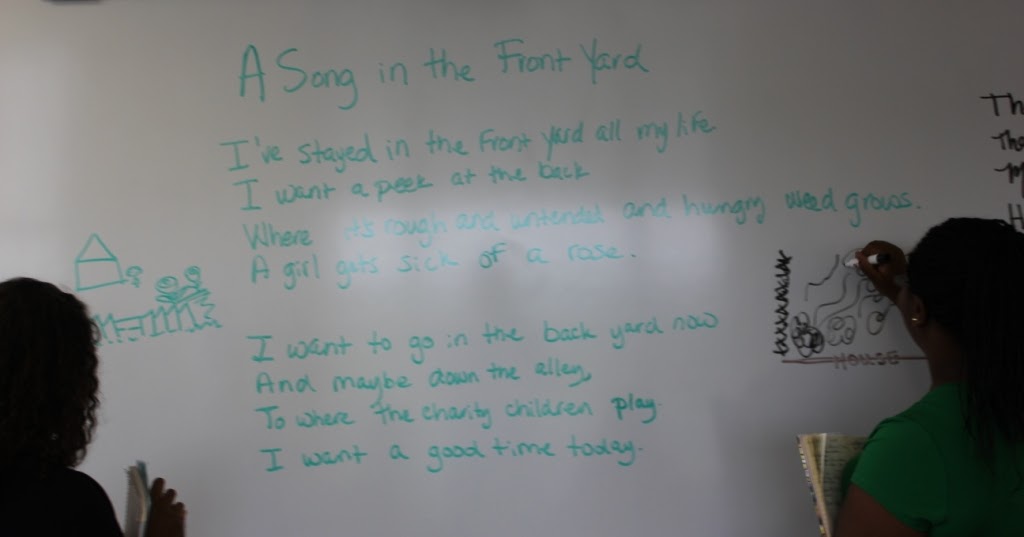 A Song in the Front Yard
I've stayed in the Front Yard all my life.
I want a peek at the back
Where it's rough and untended and hungry weed grows.
A girl gets sick of a rose.
I want to go in the back yard now
And maybe down the alley,
To where the charity children play.
I want a good time today.
HOUSE
Th
Tho
M
H